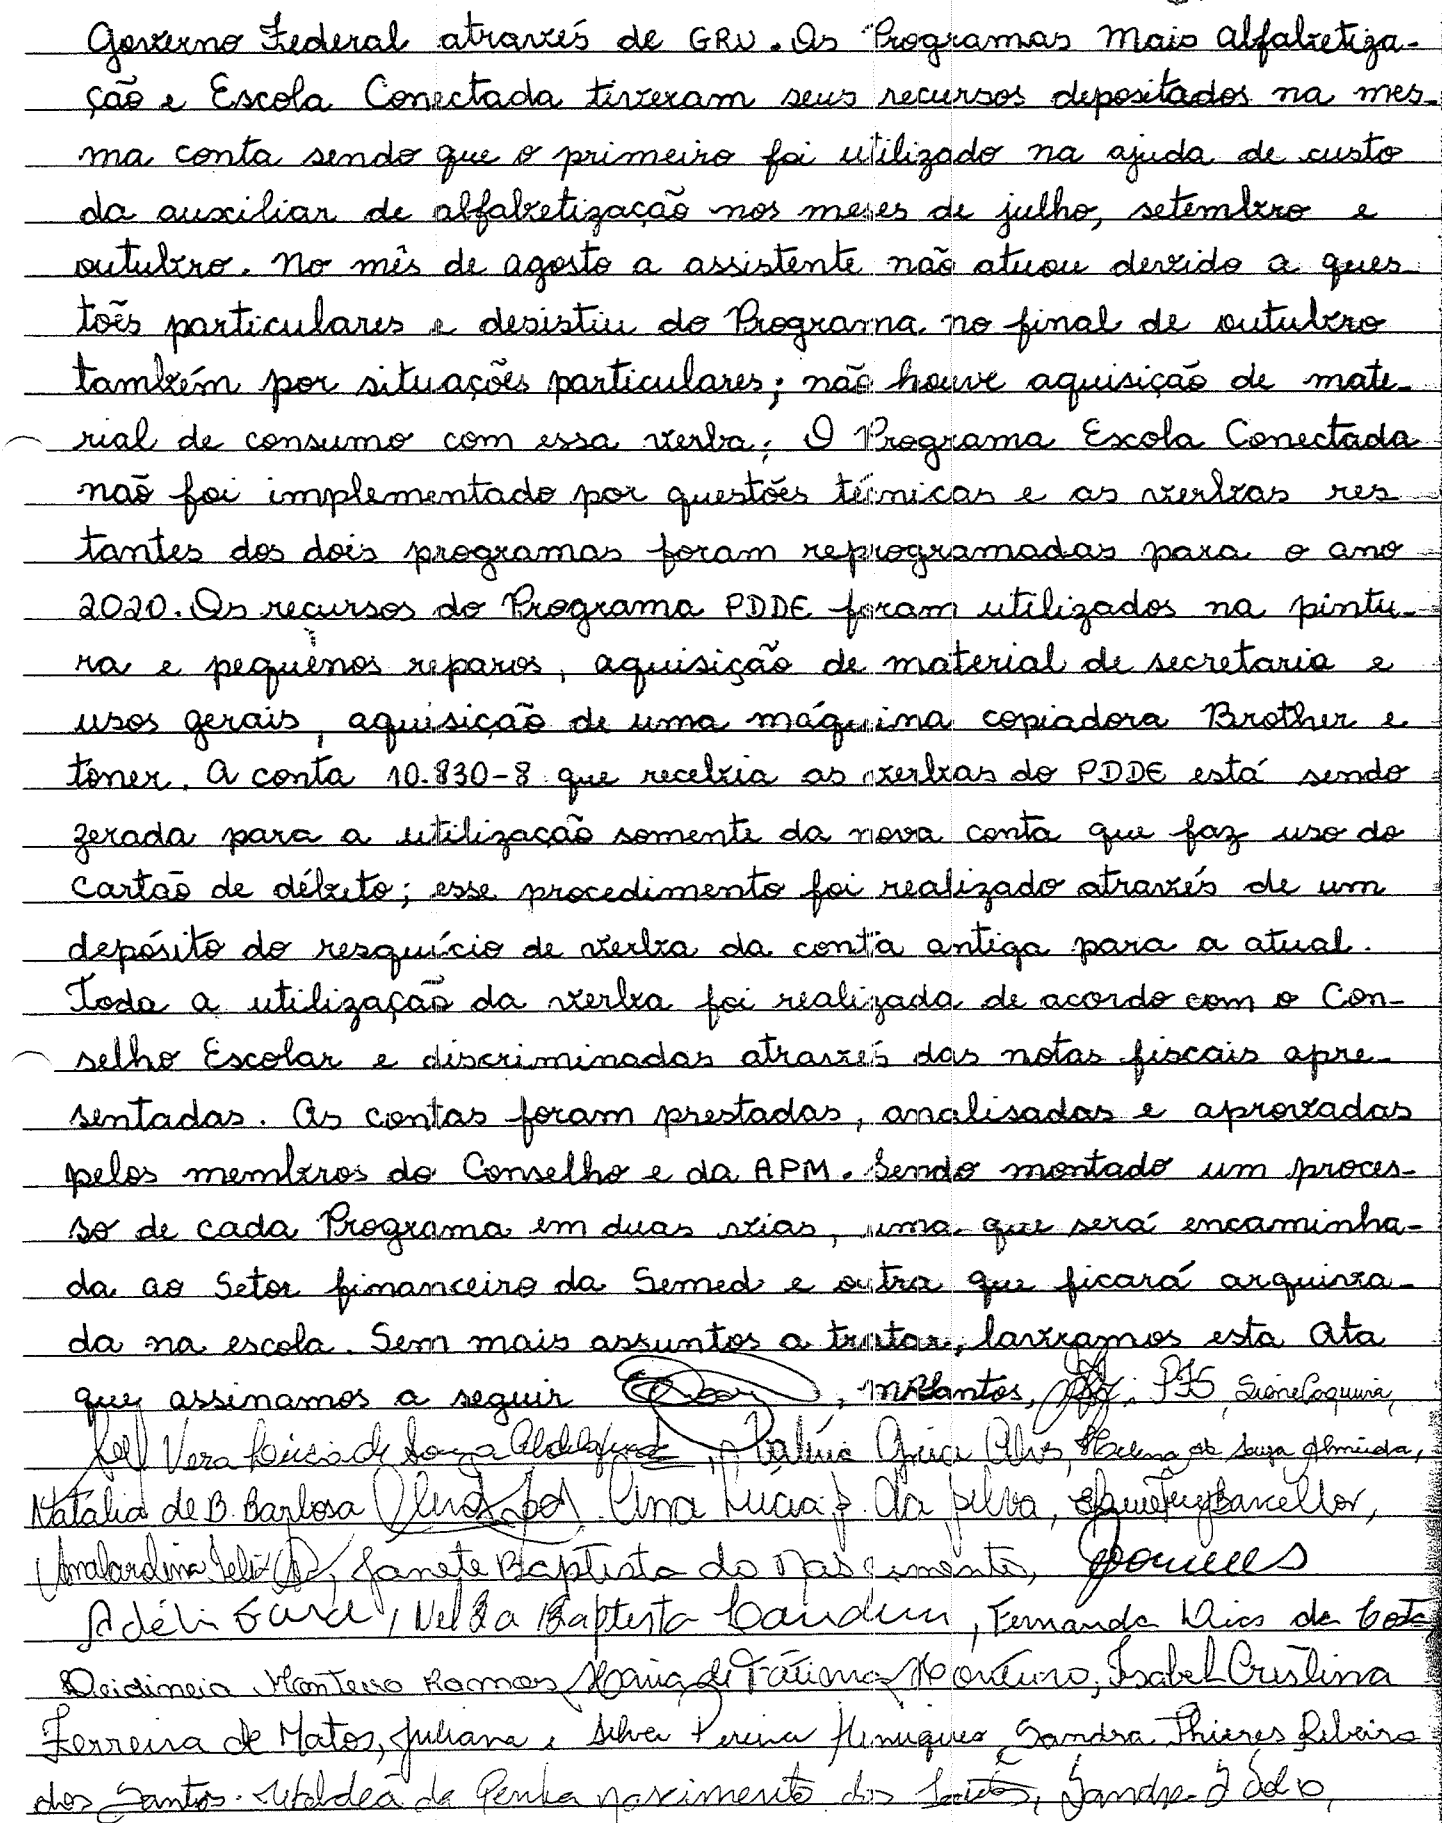 Governo Federal através de GRU. Os Programas Mais Alfabetiza-
ção e Escola Conectada tiveram seus recursos depositados na mes-
ma conta sendo que o primeiro foi utilizado na ajuda de custo
da auxiliar de alfabetização nos meses de julho, setembro e
outubro. No mês de agosto a assistente não atuou devido a ques-
tões particulares e desistiu do Programa no final de outubro
também por situações particulares; não houve aquisição de mate-
rial de consumo com essa verba; O Programa Escola Conectada
não foi implementado por questões técnicas e as verbas res
tantes dos dois programas foram reprogramadas para o ano
2020. Os recursos do Programa PDDE foram utilizados na pintu-
ra e pequenos reparos, aquisição de material de secretaria e
usos gerais, aquisição de uma máquina copiadora Brother e
toner. A conta 10.830-8 que recebia as verbas do PDDE está sendo
zerada para a utilização somente da nova conta que faz uso do
cartão de débito; esse procedimento foi realizado através de um
depósito do resquício de verba da conta antiga para a atual.
Toda a utilização da verba foi realizada de acordo com o Con-
selho Escolar e discriminadas através das notas fiscais apre-
sentadas. As contas foram prestadas, analisadas e aprovadas
pelos membros do Conselho e da APM. Sendo montado um proces-
so de cada Programa em duas vias, uma que será encaminha-
da ao Setor financeiro da Semed e outra que ficará arquiva-
da na escola. Sem mais assuntos a tratar, lavramos esta Ata
que assinamos a seguir
Vera Lúcia de Souza Alves, de Souza Almeida,
Natalia de B. Barbosa Ana Lucia da Silva, Barcellos,
Janete Baptista do Nascimento,
Baptista Fernanda Dias da Costa
Deidineia Monteiro Ramos, Maria de Fátima Monteiro, Isabel Cristina
Ferreira de Matos, Juliana e Silva Pereira Henriques, Sandra Thieres Ribeiro
dos Santos. da Penha nascimento dos Santos,